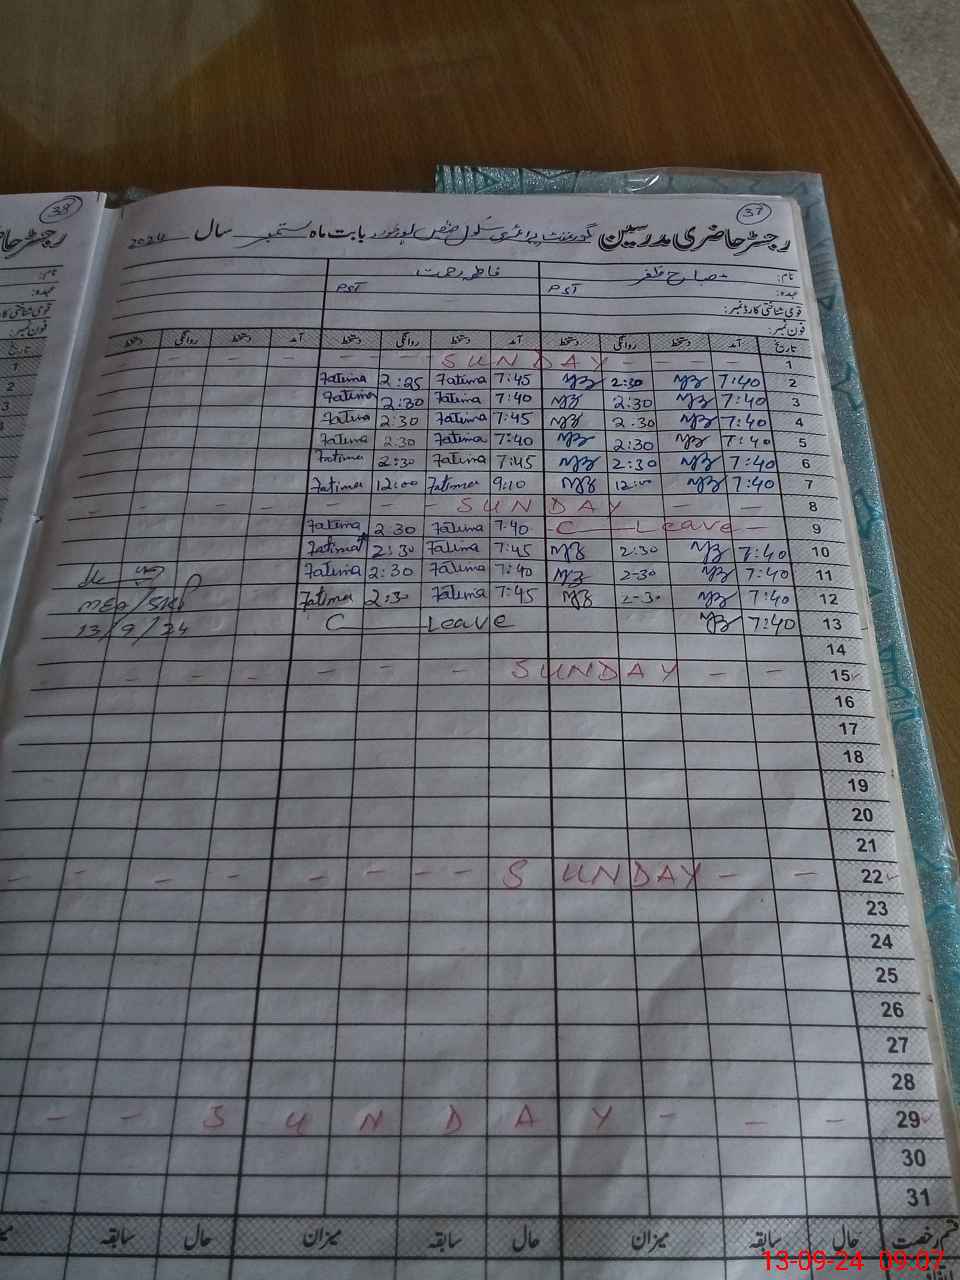 37
38
رجسٹر حاضری مدرسین گورنمنٹ پرائمری سکول بابت ماہ ستمبر سال 2024
رجسٹر حا
نام: مصباح ظفر فاطمہ رحمت
عہدہ: PST PST
قومی شناختی کارڈ نمبر:
فون نمبر:
تاریخ آمد دستخط روانگی دستخط آمد دستخط روانگی دستخط آمد دستخط روانگی دستخط
1 - - - - - - - SUNDAY - - -
2 7:40 2:30 7:45 Fatima 2:25 Fatima
3 7:40 2:30 7:40 Fatima 2:30 Fatima
4 7:40 2:30 7:45 Fatima 2:30 Fatima
5 7:40 2:30 7:40 Fatima 2:30 Fatima
6 7:40 2:30 7:45 Fatima 2:30 Fatima
7 7:40 12:00 9:10 Fatima 12:00 Fatima
8 - - - - - - - SUNDAY - - -
9 C Leave 7:40 Fatima 2:30 Fatima
10 7:40 2:30 7:45 Fatima 2:30 Fatima
11 7:40 2-30 7:40 Fatima 2:30 Fatima
12 7:40 2-30 7:45 Fatima 2:30 Fatima
13 7:40 C Leave 13/9/24
14
15 - - - - - - - SUNDAY - -
16
17
18
19
20
21
22 - - - - - - - SUNDAY - -
23
24
25
26
27
28
29 - - SUNDAY - - -
30
31
قسم رخصت حال سابقہ میزان حال سابقہ میزان حال سابقہ
13-09-24 09:07